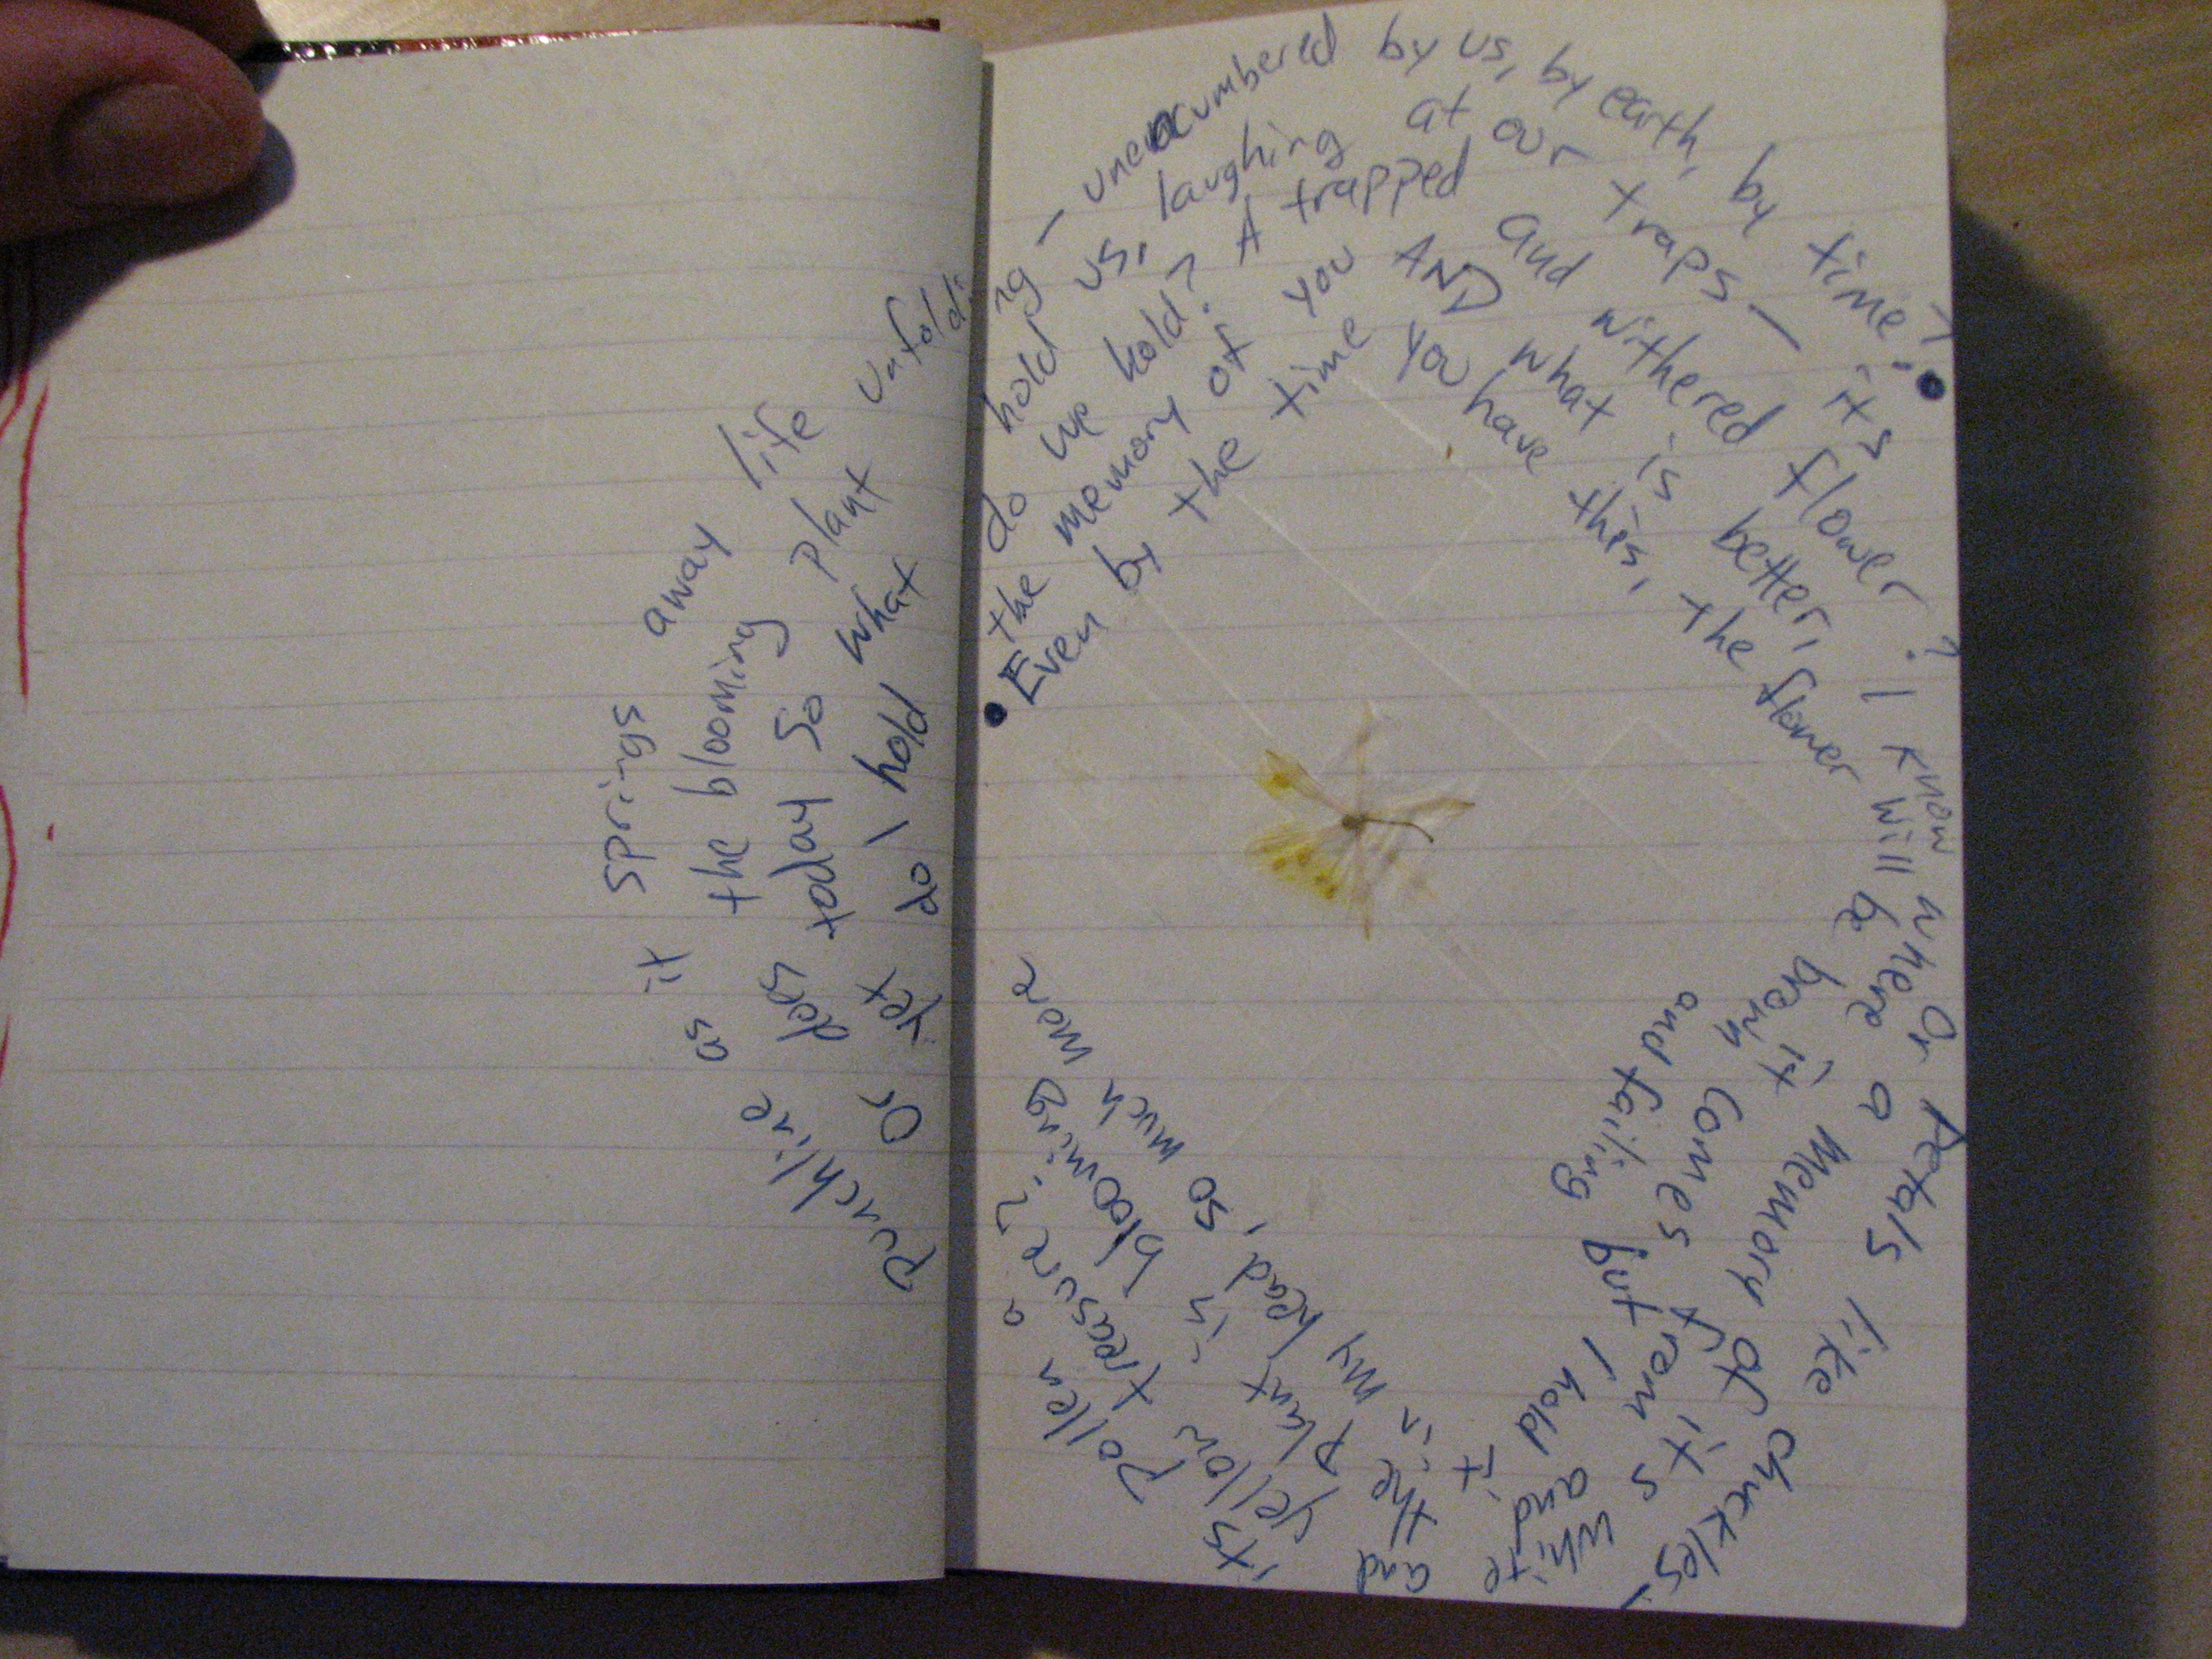 Even by the time you have this, the flower will be brown and failing but I hold it in my head, so much more
yet do I hold the memory of you AND what is better, I know where it comes from and the plant is blooming
today So what do we hold? A trapped and withered flower? Or a memory of its white and its yellow treasure?
Or does the blooming plant hold us, laughing at our traps – its petals like chuckles, its pollen a
punchline as it springs away life unfolding – unencumbered by us, by earth, by time!